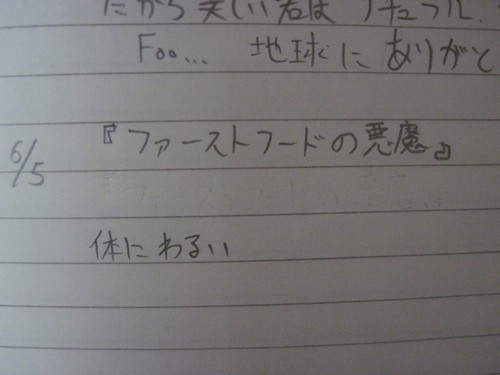 だから美しい君はナチュラル.
Foo... 地球にありがと
6/5
『ファーストフードの悪魔』
体にわるい